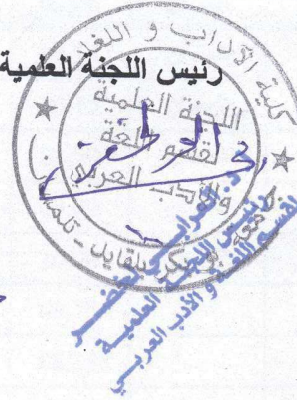 رئيس اللجنة العلمية
كلية الآداب و اللغات
اللجنة العلمية
لقسم اللغة
والأدب العربي
جامعة بوبكر بلقايد - تلمسان
رئيس اللجنة العلمية
لقسم اللغة و الأدب العربي